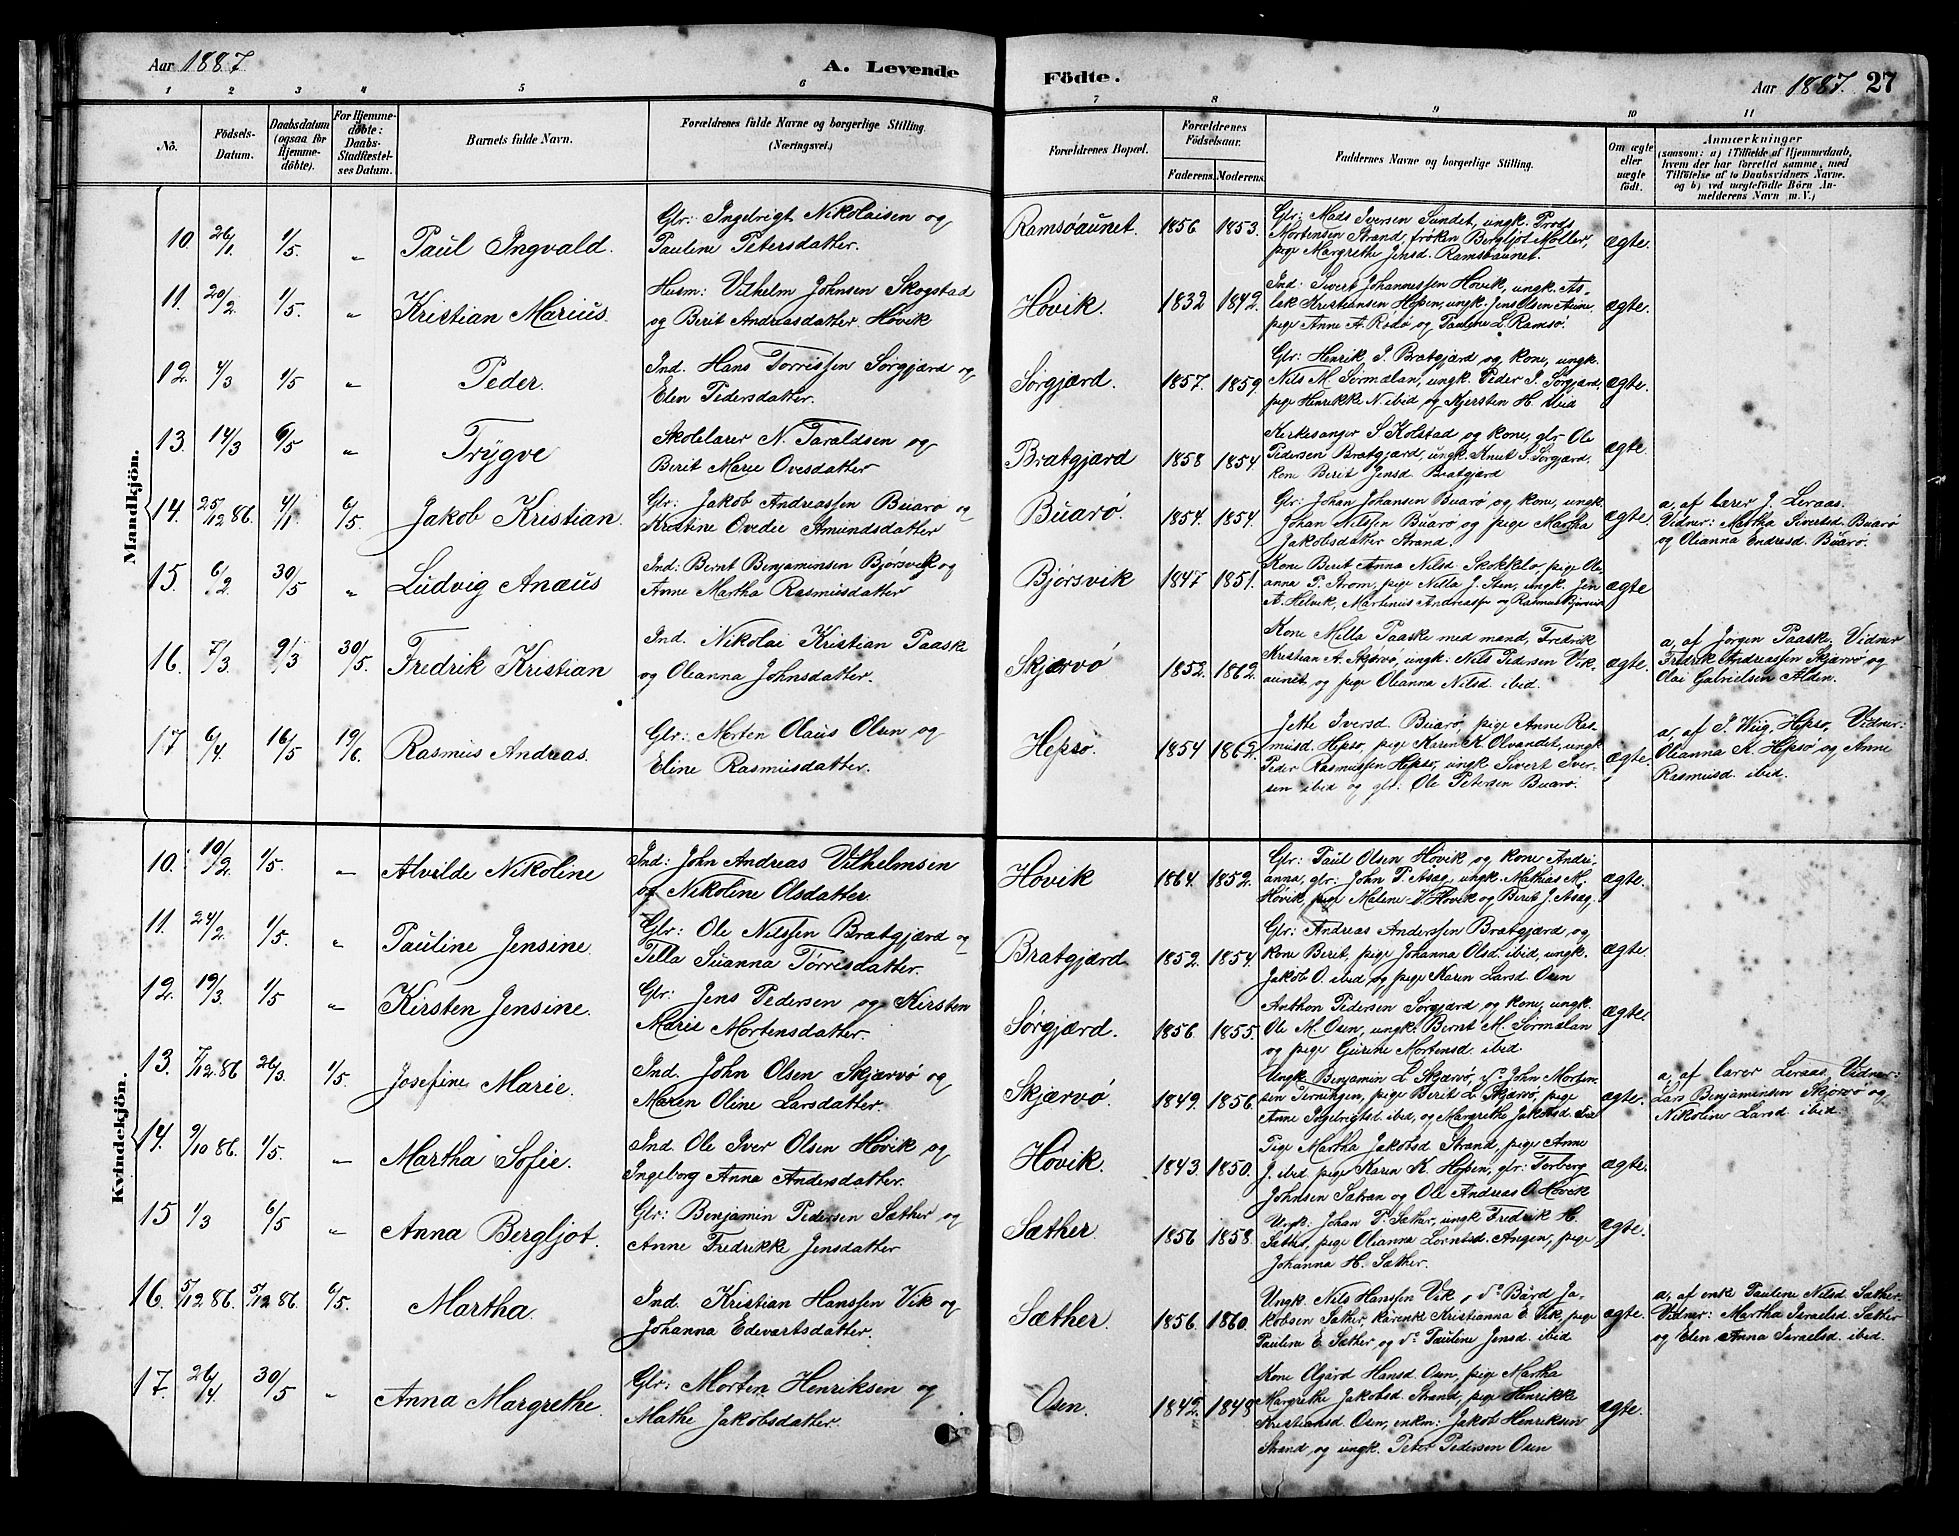 Aar 1887
A. Levende
Födte.
Aar 1887. 27
1 2 3 4 5 6 7 8 9 10 11
No.
Födsels-
Datum.
Daabsdatum
(ogsaa for
Hjemme-
döbte).
For Hjemme-
döbte:
Daabs-
Stadfæstel-
ses Datum.
Barnets fulde Navn.
Forældrenes fulde Navne og borgerlige Stilling.
(Næringsvei.)
Forældrenes Bopæl.
Forældrenes
Födselsaar.
Faderens. Moderens.
Faddernes Navne og borgerlige Stilling.
Om ægte
eller
uægte
født.
Anmærkninger
(saasom: a) i Tilfælde af Hjemmedaab,
hvem der har forrettet samme, med
Tilföielse af to Daabsvidners Navne,
og b) ved uægtefödte Börn An-
melderens Navn m. V.)
Mandkjön.
10. 26/1. 1/5. „ Paul Ingvald.
Glr: Ingebrigt Nikolaisen og
Pauline Petersdatter.
Ramsøaunet. 1856 1853.
Glr: Mads Iversen Sundet, ungk.
Mortensen Strand, frøken Bergljot Møller,
pige Margrethe Jensd. Ramsøaunet.
ægte.
11. 20/2 1/5. „ Kristian Marius.
Husm: Vilhelm Johnsen Skogstad
og Berit Andreasdatter. Høvik
Hovik. 1832 1842.
Ind: Sivert Johannessen Høvik, ungk. As-
lak Kristiansen Hopen, ungk. Jens Olsen Aune,
pige Anne A. og Pauline L. Ramsø.
ægte.
12. 4/3 1/5 „ Peder.
Ind. Hans Torrissen Sørgjærd og
Elen Pedersdatter.
Sørgjærd. 1857. 1859.
Glr: Henrik J. Bratgjærd og kone, ungk.
Nils M. Sørmalan, ungk. Peder J. Sørgjærd,
pige Henrikke N. ibid og Kjersten H. ibid
ægte.
13. 14/3 6/5 „ Trygve
Skolelærer N. Taraldsen og
Berit Marie Ovesdatter
Bratgjærd 1858 1854
Kirkesanger S Kolstad og kone, glr Ole
Pedersen Bratgjærd, ungk. Knut S. Sørgjærd,
kon Berit Jensd Bratgjærd
ægte.
14. 25/12 86. 4/1 6/5. Jakob Kristian.
Glr: Jakob Andreassen Buarø og
Kristine Ovedie Amundsdatter
Buarø. 1854. 1854.
Glr: Johan Johansen Buarø og kone, ungk.
Johan Nilssen Buarø og pige Martha
Jakobsdatter Strand.
ægte.
a, af lærer J. Leraas.
Vidner: Martha Sivertsd. Buarø
og Olianna Endresd. Buarø.
15. 6/2 30/5 „ Ludvig Anæus
Ind: Bernt Benjaminsen Bjørsvik og
Anne Martha Rasmusdatter
Bjørsvik 1847 1851.
Kone Berit Anna Nilsd. Skokklo, pige Ole-
anna P. Strøm, pige Nilla J. Sten, ungk. Jen
A. Helvik, Martinus Andreasse og Rasmus Bjørsvik
ægte
16. 7/3 9/3 30/5. Fredrik Kristian
Ind. Nikolai Kristian Paaske
og Oleanna Johnsdatter.
Skjærvø 1852. 1862.
Kone Milla Paaske med mand, Fredrik
Kristian A. Skjærvø, ungk: Nils Pedersen Vik-
aunet og pige Oleanna Nilsd. ibid.
ægte.
a, af Jørgen Paaske. Vidner
Fredrik Andreassen Skjærvø og
Olai Gabrielsen Alden.
17 6/4 16/5 19/6. Rasmus Andreas.
Glr: Morten Olaus Olsen og
Eline Rasmusdatter.
Hepsø. 1854 1862.
Jette Iversd. Buarø, pige Anne Ras-
musd. Hepsø, pige Karen K. Olvandet, ungk
Peder Rasmussen Hepsø, ungk Sivert Iver-
sen ibid og glr: Ole Petersen Buarø.
ægte.
a, af J. Wiig, Hepsø, Vidner:
Oleanna K. Hepsø og Anne
Rasmusd. ibid.
Kvindekjön.
10. 19/2. 1/5. „ Alvilde Nikoline
Ind: John Andreas Vilhelmsen
og Nikoline Olsdatter.
Hovik 1864. 1852.
Glr: Paul Olsen Høvik og kone Andri-
anna, glr: John P. Asæg, ungk. Mathias M.
Høvik, pige Malene V Høvik og Berit J. Asæg.
ægte.
11. 24/2. 1/5. „ Pauline Jensine.
Glr: Ole Nilssen Bratgjærd og
Pella Susanna Tørrisdatter.
Bratgjærd 1852. 1854.
Glr: Andreas Anderssen Bratgjærd og
kone Berit, pige Johanna Olsd. ibid, ungk.
Jakob O. ibid og pige Karen Larsd Osen
ægte.
12. 19/3. 1/5 „ Kirsten Jensine.
Glr: Jens Pedersen og Kirsten
Marie Mortensdatter.
Sørgjærd. 1856. 1855.
Anthon Pedersen Sørgjærd og kone, ungk.
Ole M. Osen, ungk: Bernt M. Sørmalan
og pige Gurine Mortensd. ibid.
ægte.
13. 7/12.86 26/3. 1/5. Josefine Marie.
Ind. John Olsen Skjærvø og
Maren Oline Larsdatter.
Skjærvø 1849. 1856.
Ungk. Benjamin L Skjærvø, do John Morten-
sen Terningen, pige Berit L. Skjærvø, pige
Anne Ingebrigtsd. ibid, og Margrethe Jakobsd.
ægte.
a, af lærer Leraas. Vidner:
Lars Benjaminsen Skjærvø og
Nikoline Larsd ibid.
14. 9/10 86. 1/5. „ Martha Sofie.
Ind. Ole Iver Olsen Høvik og
Ingeborg Anna Andersdatter.
Høvik. 1843. 1850.
Pige Martha Jakobsd Strand, pige Anne
J. ibid pige Karen K. Hopen, glr: Torberg
Johnsen Sætran og Ole Andreas O Høvik
ægte.
15 1/3 6/5 „ Anna Bergljot.
Glr: Benjamin Pedersen Sæther og
Anne Fredrikke Jensdatter
Sæther. 1856 1858.
Ungk: Johan P. Sæther, ungk Fredrik H.
Sæther, pige Oleanna Lorntsd. Angen, pige
Johanna H. Sæther.
ægte.
16. 5/12 86. 5/12 86. 6/5. Martha.
Ind. Kristian Hanssen Vik og
Johanna Edevartsdatter.
Sæther. 1856. 1860.
Ungk. Nils Hanssen Vik, do Bård Ja-
kobsen Sæther, Kristianna E Vik, pige
Pauline E. Sæther, og do Pauline Jensd. ibid
ægte.
a, af enke Pauline Nilsd. Sæther.
Vidner: Martha Israelsd. Sæther
og Elen Anna Israelsd. ibid.
17. 26/4 30/5 „ Anna Margrethe.
Glr: Morten Henriksen og
Mathe Jakobsdatter.
Osen. 1842. 1848
Kone Olgård Hansd. Osen, pige Martha
Margrethe Jakobsd. Strand, pige Henrikke
Kristiansd. Osen, enkm: Jakob Henriksen
Strand og ungk. Peter Pedersen Osen
ægte.